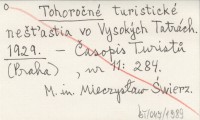 Tohoročné turistické
nešťastia vo Vysokých Tatrách.
1929. — Časopis Turistů
(Praha), nr 11: 284.
M. in. Mieczysław Świerz.